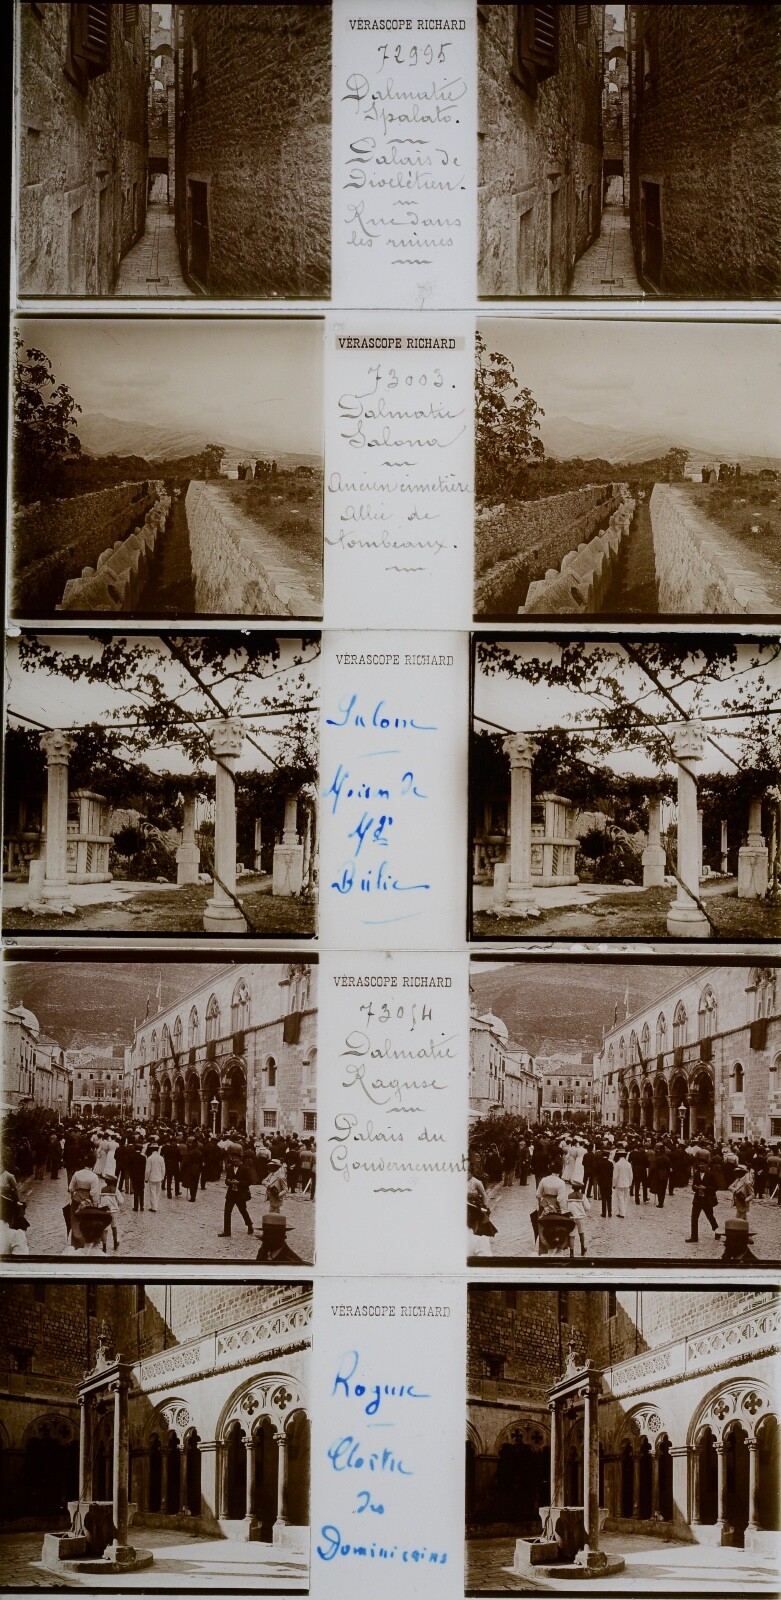 VÉRASCOPE RICHARD
72995
Dalmatie
Spalato.
Palais de
Dioclétien.
Rue dans
les ruines
VÉRASCOPE RICHARD
73003.
Dalmatie
Salona
Ancien cimetière
Allée de
Tombeaux.
VÉRASCOPE RICHARD
Salone
Maison de
Mgr
Bulic
VÉRASCOPE RICHARD
73014
Dalmatie
Raguse
Palais du
Gouvernement
VÉRASCOPE RICHARD
Raguse
Cloître
des
Dominicains